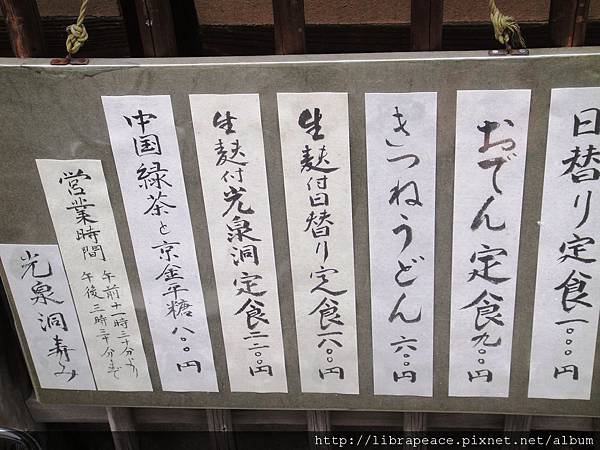 日替り定食一、〇〇〇円
おでん定食九〇〇円
きつねうどん六〇〇円
生麩付日替り定食一六〇〇円
生麩付光泉洞定食二二〇〇円
中国緑茶と京金平糖八〇〇円
営業時間 午前十一時三十分より
午後三時三十分まで
光泉洞寿み
http://librapeace.pixnet.net/album